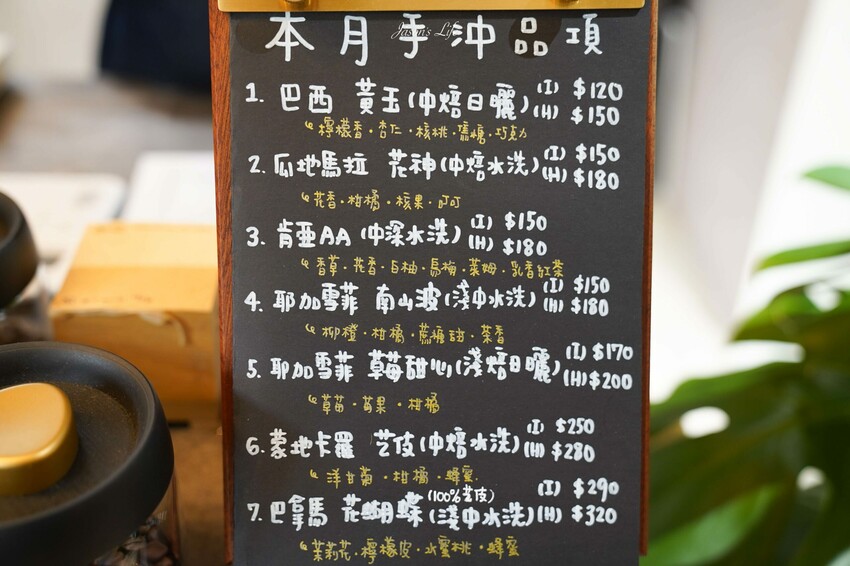 本月手沖品項
Jason's Life
1. 巴西 黃玉(中焙日曬) (I) $120 (H) $150
檸檬香·杏仁·核桃·焦糖·巧克力
2. 瓜地馬拉 花神(中焙水洗) (I) $150 (H) $180
花香·柑橘·核果·可可
3. 肯亞AA (中深水洗) (I) $150 (H) $180
香草·花香·白柚·烏梅·萊姆·乳香紅茶
4. 耶加雪菲 南山波(淺中水洗) (I) $150 (H) $180
柳橙·柑橘·蔗糖甜·茶香
5. 耶加雪菲 草莓甜心(淺焙日曬) (I) $170 (H) $200
草莓·莓果·柑橘
6. 蒙地卡羅 艺伎(中焙水洗) (I) $250 (H) $280
洋甘菊·柑橘·蜂蜜
7. 巴拿馬 花蝴蝶(100%艺伎)(淺中水洗) (I) $290 (H) $320
茉莉花·檸檬皮·水蜜桃·蜂蜜